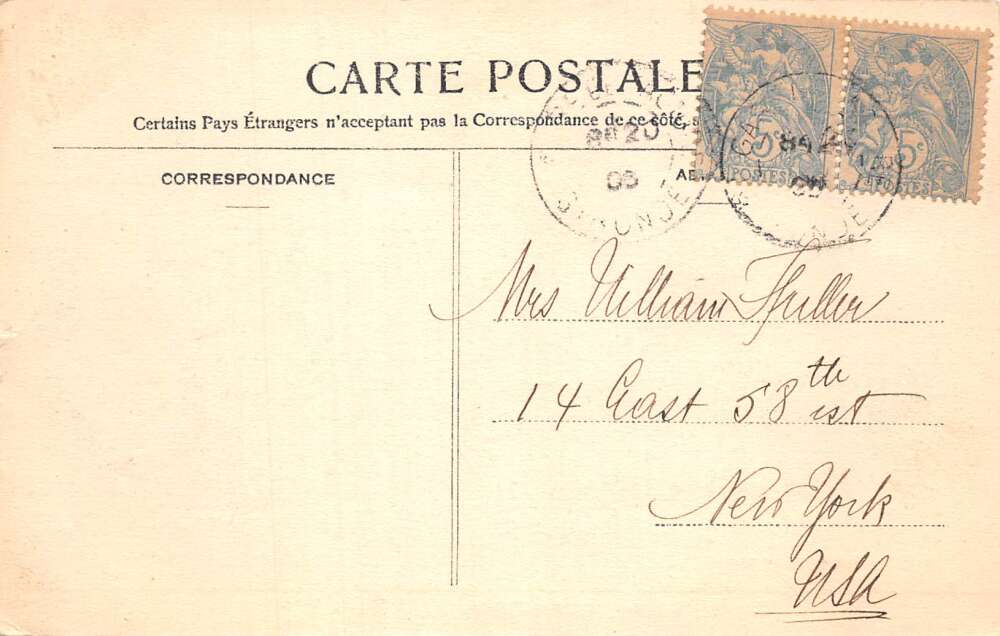 CARTE POSTALE
Certains Pays Étrangers n'acceptant pas la Correspondance de ce côté,
CORRESPONDANCE
Mrs William Fuller
14 East 58th st
New York
USA
5c
POSTES
5c
POSTES
20
05